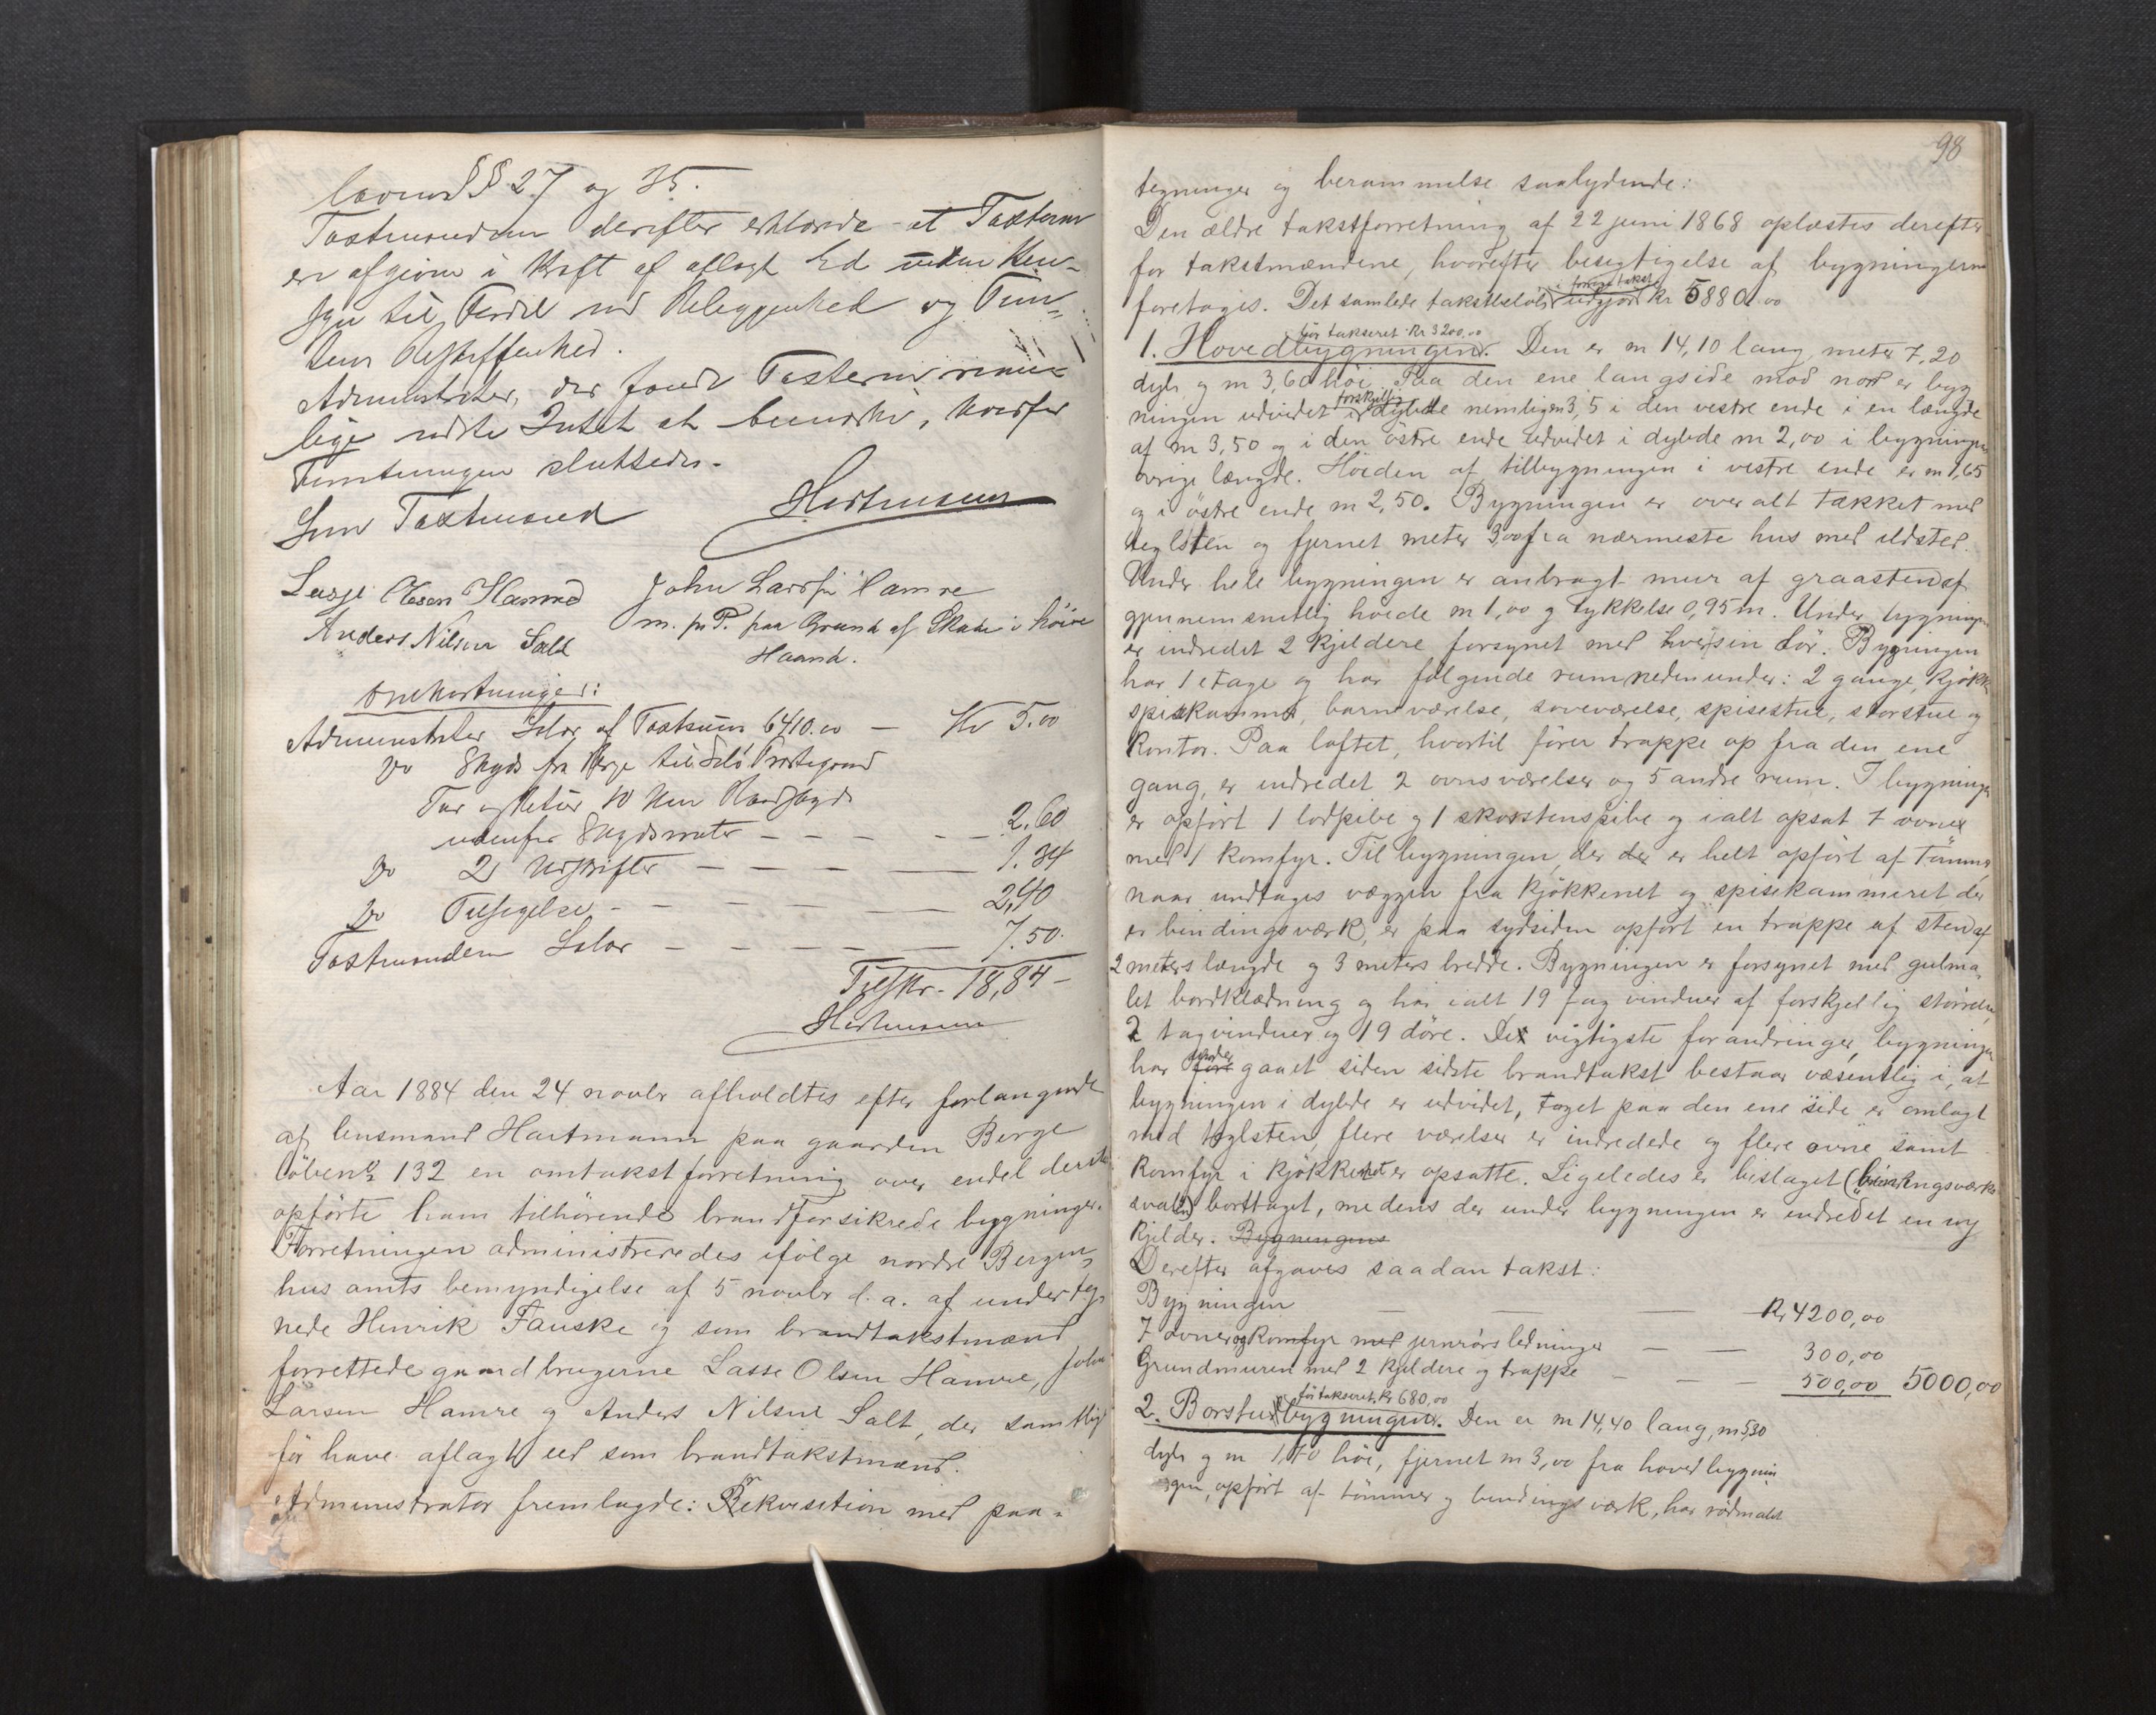 lovens §§ 27 og 35.
Taxtmændene derefter erklærede at Taxterne
er afgivne i Kraft af aflagt Ed uden Hen-
syn til Fordel ved Beliggenhed og Tun-
tens Beskaffenhed.
Administrator, der fandt Taxterne rime-
lige vidste Intet at bemærke, hvorfor
Forretningen sluttedes.
Som Taxtmænd Hartmann
Lasse Olsen Hamre John Larsen Hamre
m. p. P. paa Grund af Skade i höire
Anders Nilsen Salt Haand.
Omkostninger:
Administrator Salær af Taxtsum 6410.00 — Kr 5.00
Do Skyds fra Berge til Selö Præstegaard
Tur og Retur 10 Km
udenfor Skydsruter — — — — 2.60
Do 2 Udskrifter — — — — 1.34
Do Tilsigelse — — — — 2,40
Taxtmænden Salær — — — — 7.50.
Tils Kr. 18,84 -
Hartmann
Aar 1884 den 24 novbr afholdtes efter forlangende
af lensmand Hartmann paa gaarden Berge
löbeno 132 en omtakstforretning over endel dersteds
opførte ham tilhörende brandforsikrede bygninger.
Forretningen administreredes ifölge nordre Bergen-
hus amts bemyndigelse af 5 novbr d. a. af underteg-
nede Henrik Fauske og som brandtakstmænd
forrettede gaardbrugerne Lasse Olsen Hamre, John
Larsen Hamre og Anders Nilsen Salt, der samtlige
för have aflagt eed som brandtakstmænd.
Administrator fremlagde: Rekvisition med paa-
98
tegninger og berammelse saalydende:
Den ældre takstforretning af 22 juni 1868 oplæstes derefter
for takstmændene, hvorefter besigtigelse af bygningerne
foretages. Det samlede takstbeløb i forrige takst udgjør kr 5880.00
för takseret Kr 3200,00
1. Hovedbygningen. Den er m 14,10 lang, meter 7,20
dyb og m 3,60 höi. Paa den ene langside mod nord er byg
ningen udvidet i forskjellig dybde nemligen 3,5 i den vestre ende i en længde
af m 3,50 og i den östre ende udvidet i dybde m 2,00 i bygningens
övrige længde. Höiden af tilbygningen i vestre ende er m 1,65
og i östre ende m 2,50. Bygningen er over alt tækket med
teglsten og fjernet meter 3,00 fra nærmeste hus med ildsted.
Under hele bygningen er anbragt mur af graasten af
gjennemsnitlig höide m 1,00 og tykkelse 0,95 m. Under bygningen
er indredet 2 kjeldere forsynet med hver sin dör. Bygningen
har 1 etage og har fölgende rum nedenunder: 2 gange, kjökken
spiskammer, barnværelse, soveværelse, spisestue, storstue og
kontor. Paa loftet, hvortil förer trappe op fra den ene
gang, er indredet 2 ovnsværelser og 5 andre rum. I bygningen
er opfört 1 lodpibe og 1 skorstenspibe og ialt opsat 7 ovne
med 1 komfyr. Til bygningen, der der er helt opfört af tömmer,
naar undtages væggen fra kjökkenet og spisekammeret der
er bindingsværk, er paa sydsiden opfört en trappe af sten af
2 meters længde og 3 meters bredde. Bygningen er forsynet med gulma-
let bordklædning og har ialt 19 fag vinduer af forskjellig störrelse,
2 tagvinduer og 19 döre. De vigtigste forandringer, bygningen
har undergaaet siden sidste brandtakst bestaar væsentlig i, at
bygningen i dybde er udvidet, taget paa den ene side er omlagt
med teglsten, flere værelser er indredede og flere ovne samt
komfyr i kjökkenet er opsatte. Ligeledes er bislaget (bindingsværks
svalen) borttaget, medens der under bygningen er indredet en ny
kjelder. Bygningens
Derefter afgaves saadan takst:
Bygningen — — — Kr 4200,00
7 ovner og komfyr med jernrörsledninger — — 300,00
Grundmuren med 2 kjeldere og trappe — — — 500,00 5000,00
för takseret Kr 680,00
2. Borstuebygningen. Den er m 14,40 lang, m 5,30
dyb og m 1,70 höi, fjernet m 3,00 fra hovedbygnin
gen, opfört af tömmer og bindingsværk, har rödmalet